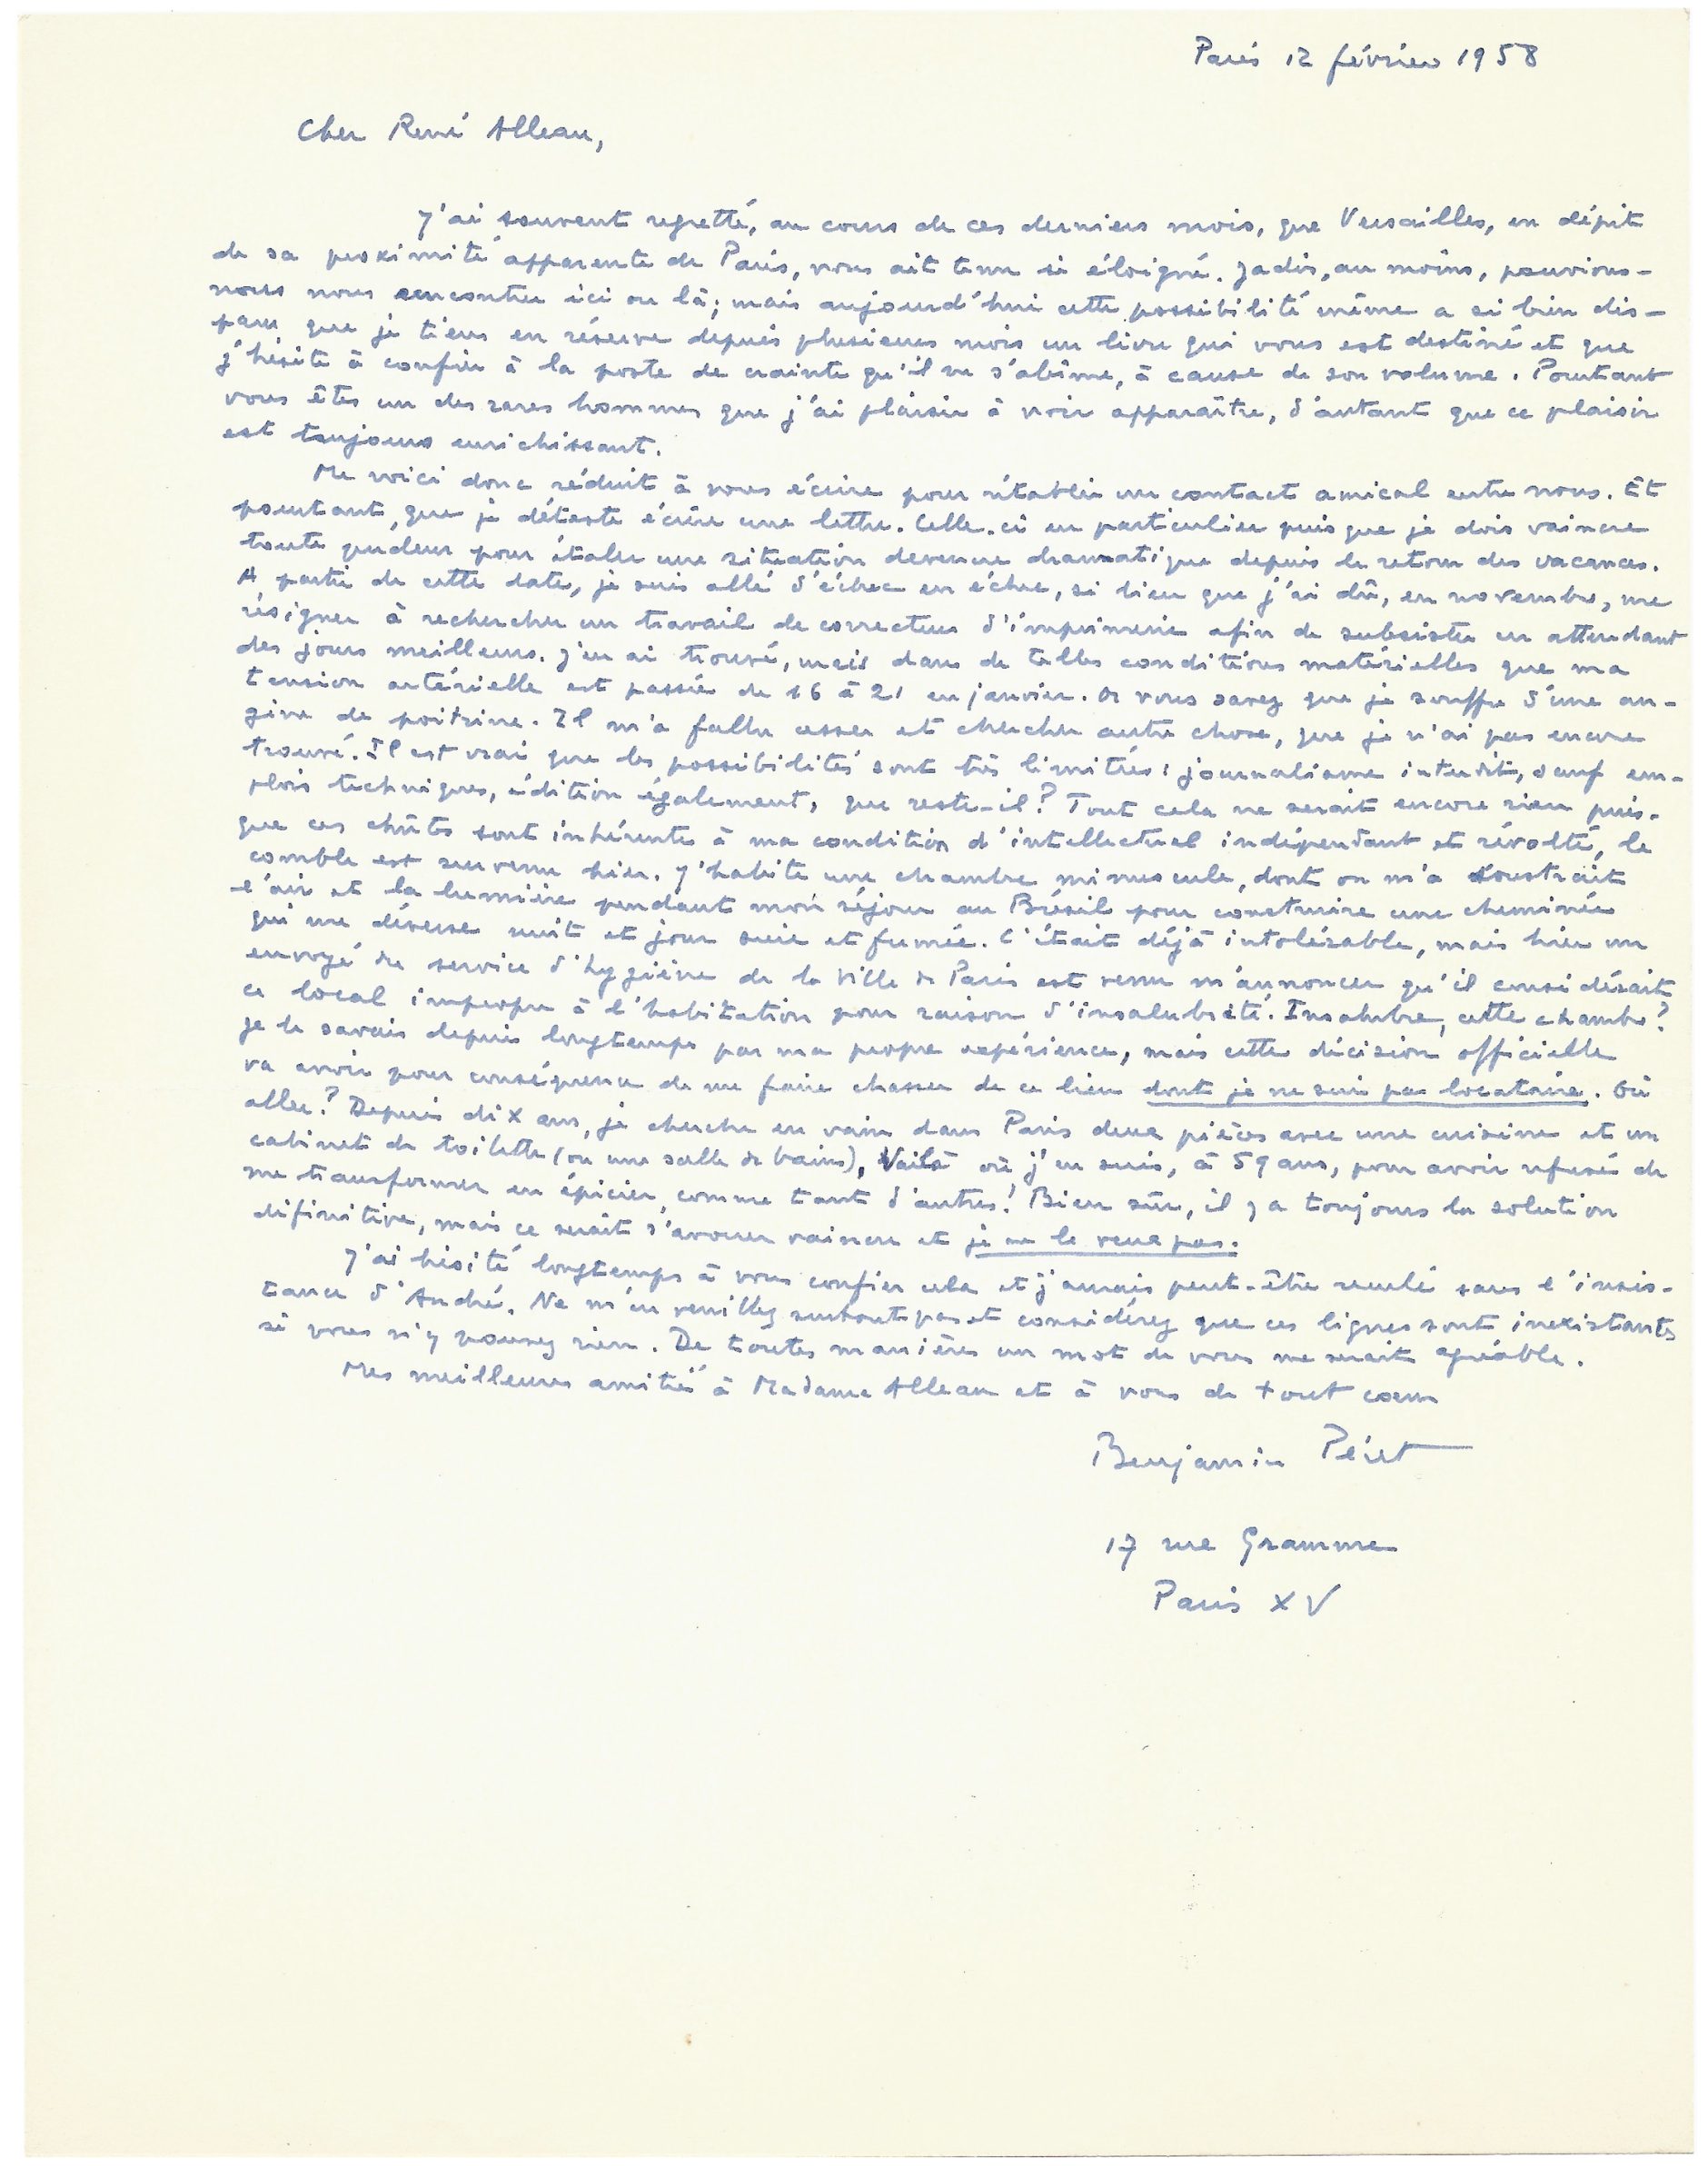 Paris 12 février 1958
Cher René Alleau,
J'ai souvent regretté, au cours de ces derniers mois, que Versailles, en dépit
de sa proximité apparente de Paris, nous ait tenu si éloigné. Jadis, au moins, pouvions-
nous nous rencontrer ici ou là; mais aujourd'hui cette possibilité même a si bien dis-
paru que je tiens en réserve depuis plusieurs mois un livre qui vous est destiné et que
j'hésite à confier à la poste de crainte qu'il ne s'abîme, à cause de son volume. Pourtant
vous êtes un des rares hommes que j'ai plaisir à voir apparaître, d'autant que ce plaisir
est toujours enrichissant.
Me voici donc réduit à vous écrire pour rétablir un contact amical entre nous. Et
pourtant, que je déteste écrire une lettre. Celle-ci en particulier puisque je dois vaincre
toute pudeur pour étaler une situation devenue dramatique depuis le retour des vacances.
A partir de cette date, je suis allé d'échec en échec, si bien que j'ai dû, en novembre, me
résigner à rechercher un travail de correcteur d'imprimerie afin de subsister en attendant
des jours meilleurs. J'en ai trouvé, mais dans de telles conditions matérielles que ma
tension artérielle est passée de 16 à 21 en janvier. Or vous savez que je souffre d'une an-
gine de poitrine. Il m'a fallu cesser et chercher autre chose, que je n'ai pas encore
trouvé. Il est vrai que les possibilités sont très limitées: journalisme interdit, sauf em-
plois techniques, édition également, que reste-il? Tout cela ne serait encore rien puis-
que ces chûtes sont inhérentes à ma condition d'intellectuel indépendant et révolté, le
comble est survenu hier. J'habite une chambre minuscule, dont on m'a soustrait
l'air et la lumière pendant mon séjour au Brésil pour construire une cheminée
qui me déverse nuit et jour suie et fumée. C'était déjà intolérable, mais hier un
envoyé du service d'hygiène de la Ville de Paris est venu m'annoncer qu'il considérait
ce local impropre à l'habitation pour raison d'insalubrité. Insalubre, cette chambre?
Je le savais depuis longtemps par ma propre expérience, mais cette décision officielle
va avoir pour conséquence de me faire chasser de ce lieu dont je ne suis pas locataire. Où
aller? Depuis dix ans, je cherche en vain dans Paris deux pièces avec une cuisine et un
cabinet de toilette (ou une salle de bains), Voilà où j'en suis, à 59 ans, pour avoir refusé de
me transformer en épicier, comme tant d'autres! Bien sûr, il y a toujours la solution
définitive, mais ce serait s'avouer vaincu et je ne le veux pas.
J'ai hésité longtemps à vous confier cela et j'aurais peut-être reculé sans l'insis-
tance d'André. Ne m'en veuillez surtout pas et considérez que ces lignes sont inexistantes
si vous n'y pouvez rien. De toutes manières un mot de vous me serait agréable.
Mes meilleures amitiés à Madame Alleau et à vous de tout coeur
Benjamin Péret
17 rue Gramme
Paris XV